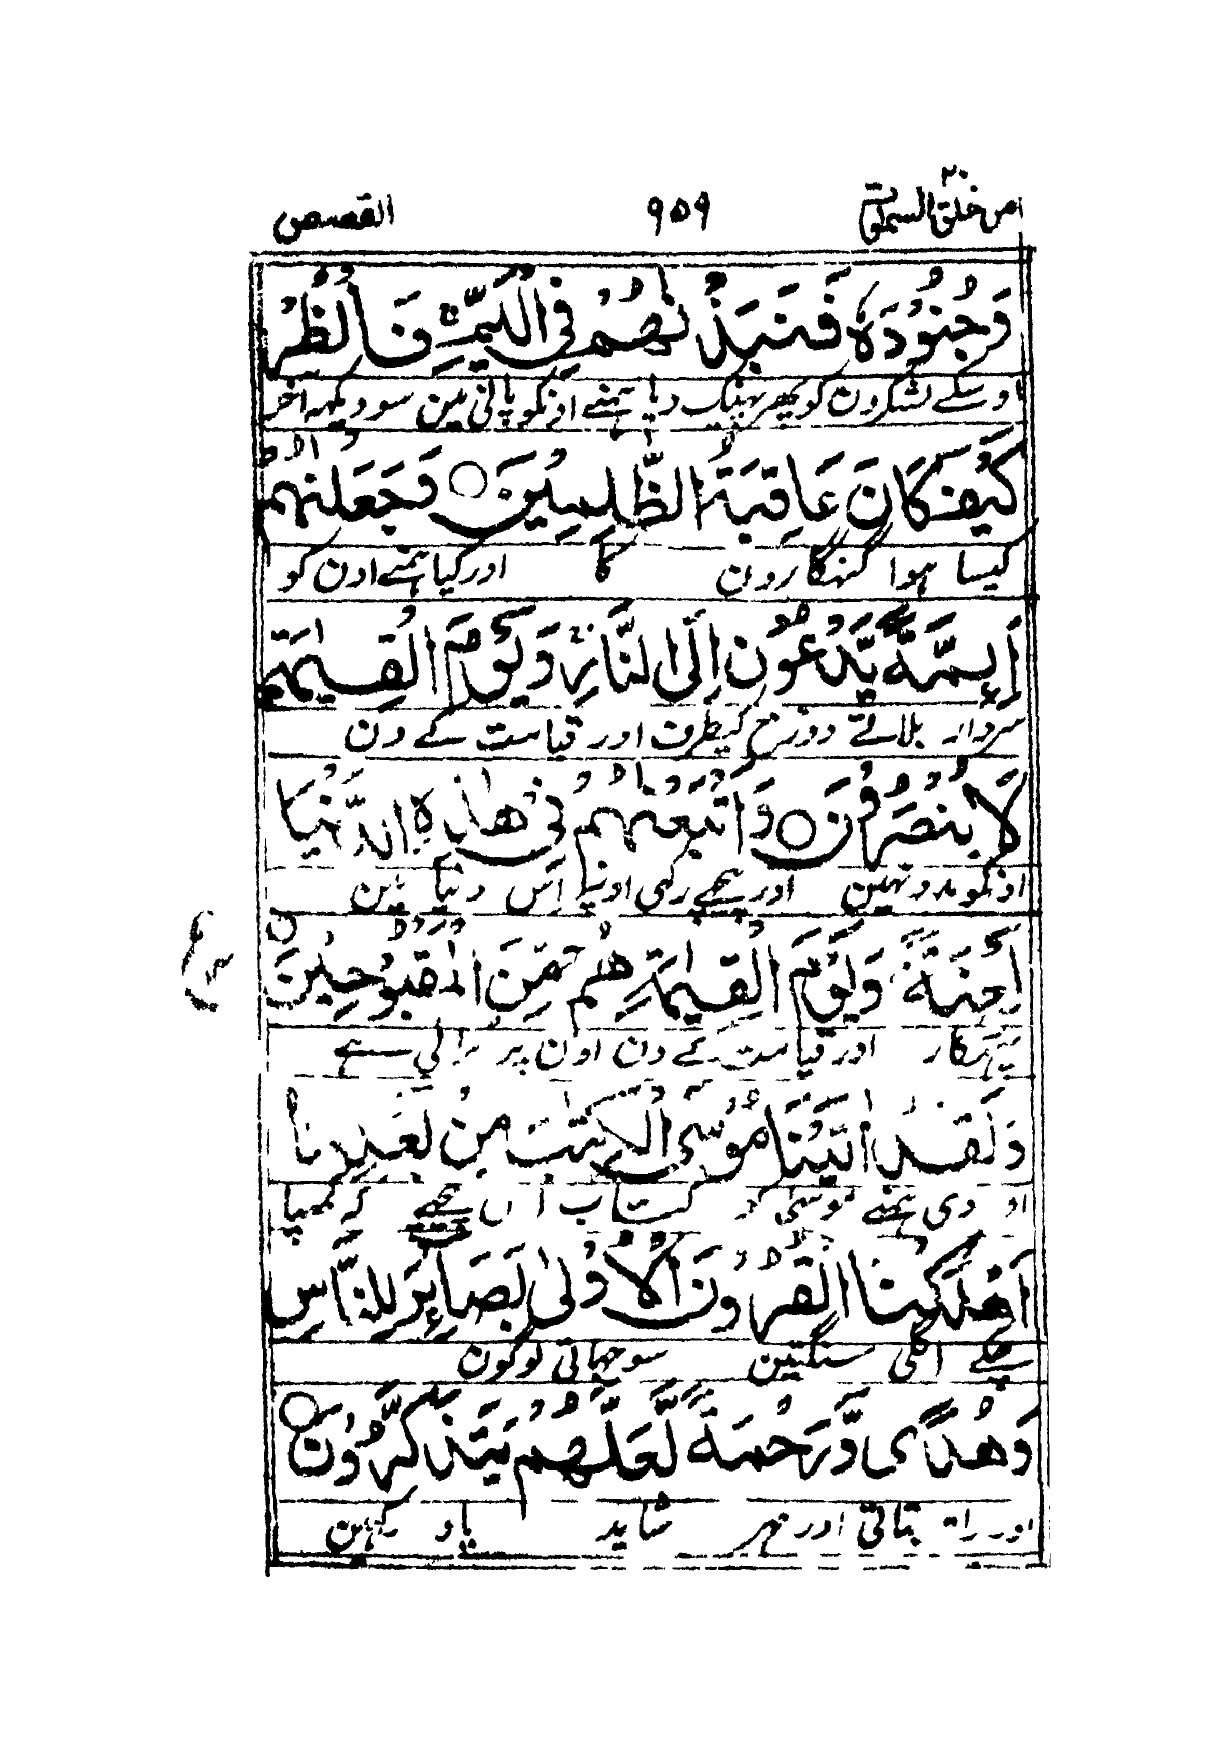 امن خلق السموات ۲۰ ۹۵۹ القصص
وَجُنُوْدَهٗ فَنَبَذْنٰهُمْ فِی الْیَمِّ ۚ فَانْظُرْ
اوسکے لشکرون کو پھر پھینک دیا ہمنے اونکو پانی مین سو دیکھہ آخر
كَیْفَ كَانَ عَاقِبَةُ الظّٰلِمِیْنَ ○ وَجَعَلْنٰهُمْ
کیسا ہوا گنہگارون کا اور کیا ہمنے اون کو
اَىِٕمَّةً یَّدْعُوْنَ اِلَی النَّارِ ۚ وَیَوْمَ الْقِیٰمَةِ
سردار بلاتے دوزخ کیطرف اور قیامت کے دن
لَا یُنْصَرُوْنَ ○ وَاَتْبَعْنٰهُمْ فِیْ هٰذِهِ الدُّنْیَا
اونکو مدد نہین اور پیچھے رکھی اونپر اس دنیا مین
لَعْنَةً ۚ وَیَوْمَ الْقِیٰمَةِ هُمْ مِّنَ الْمَقْبُوْحِیْنَ
پھٹکار اور قیامت کے دن اون پر برائی ہے
وَلَقَدْ اٰتَیْنَا مُوْسَی الْكِتٰبَ مِنْۢ بَعْدِ مَاۤ
اور دی ہمنے موسی کو کتاب اس پیچھے کہ کھپا
اَهْلَكْنَا الْقُرُوْنَ الْاُوْلٰی بَصَآىِٕرَ لِلنَّاسِ
چکے اگلی سنگتین سوجھاتی لوگون
وَهُدًی وَّرَحْمَةً لَّعَلَّهُمْ یَتَذَكَّرُوْنَ ○
اور راہ بتاتی اور مہر شاید یاد رکھین